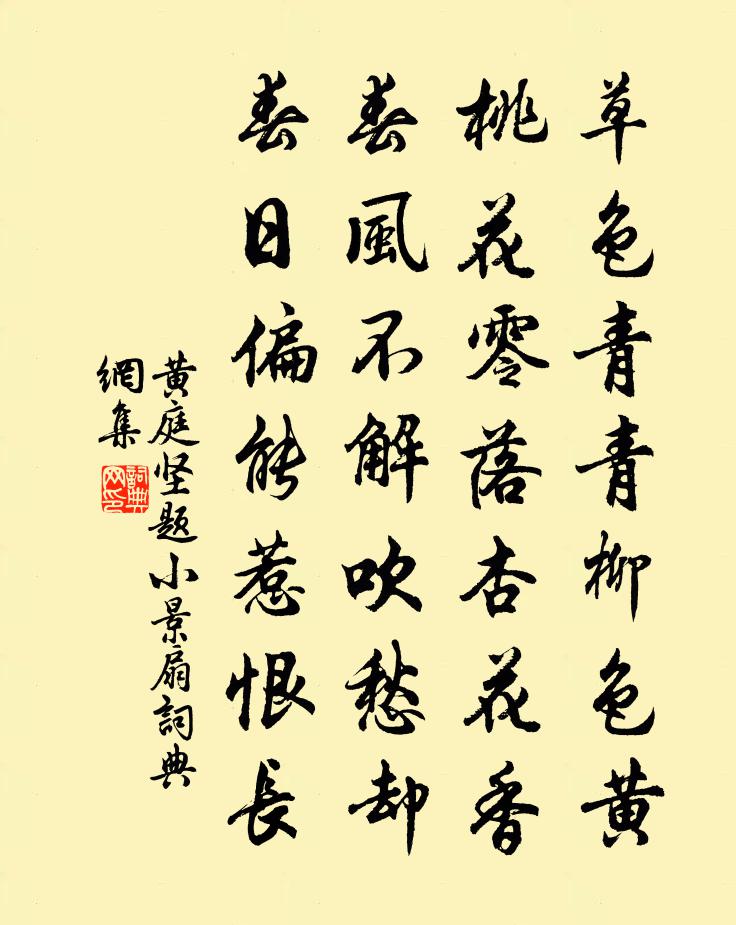 草色青青柳色黄
桃花零落杏花香
春風不解吹愁却
春日偏能惹恨長
黄庭坚题小景扇詞典
網集
詞典
网印